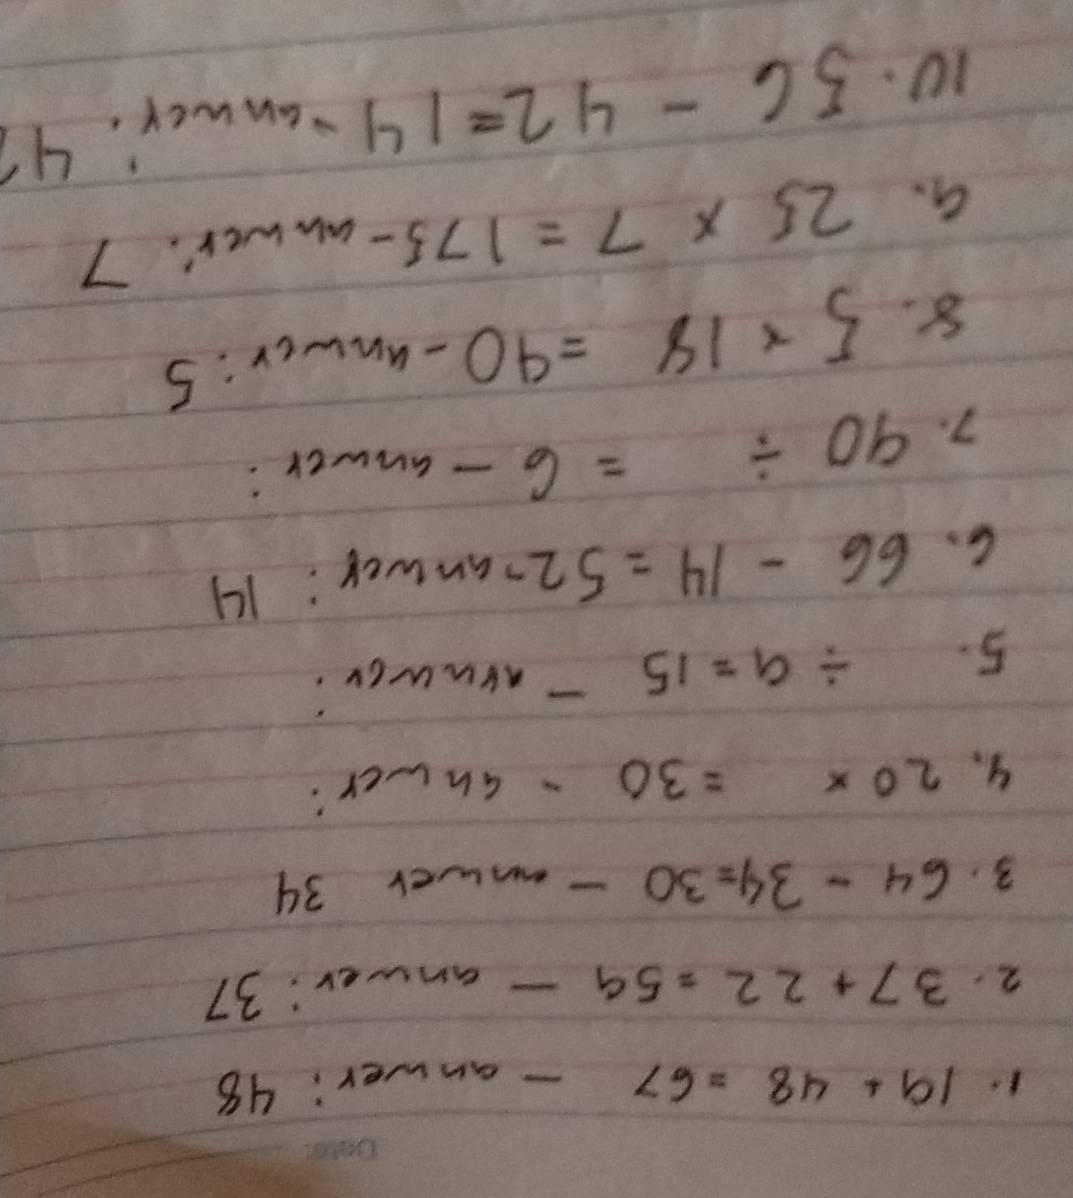 Date:
1. 19 + 48 = 67 - anwer: 48
2. 37 + 22 = 59 - anwer: 37
3. 64 - 34 = 30 - anwer 34
4. 20 × = 30 - anwer:
5. ÷ 9 = 15 - anwer:
6. 66 - 14 = 52 - anwer: 14
7. 90 ÷ = 6 - anwer:
8. 5 × 18 = 90 - anwer: 5
9. 25 × 7 = 175 - anwer: 7
10. 56 - 42 = 14 - anwer: 42